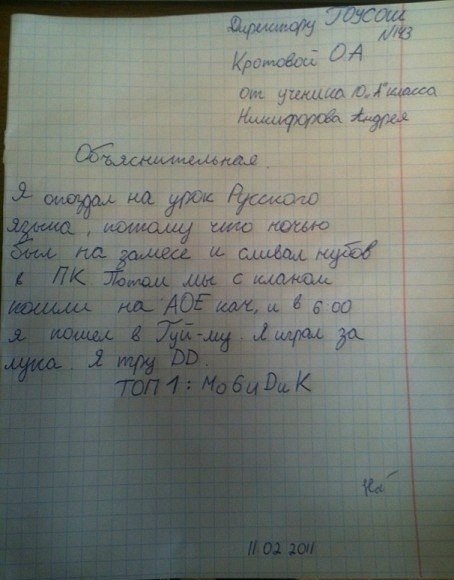 Директору ГОУСОШ
№143
Кротовой О.А
от ученика 10 „А" класса
Никифорова Андрея
Объяснительная.
Я опоздал на урок Русского
языка, потому что ночью
был на замесе и сливал нубов
в ПК. Потом мы с кланом
пошли на АОЕ кач, и в 6:00
я пошел в Гуй-му. Я играл за
лука. Я тру DD.
ТОП 1: МоБиДиК
11.02.2011